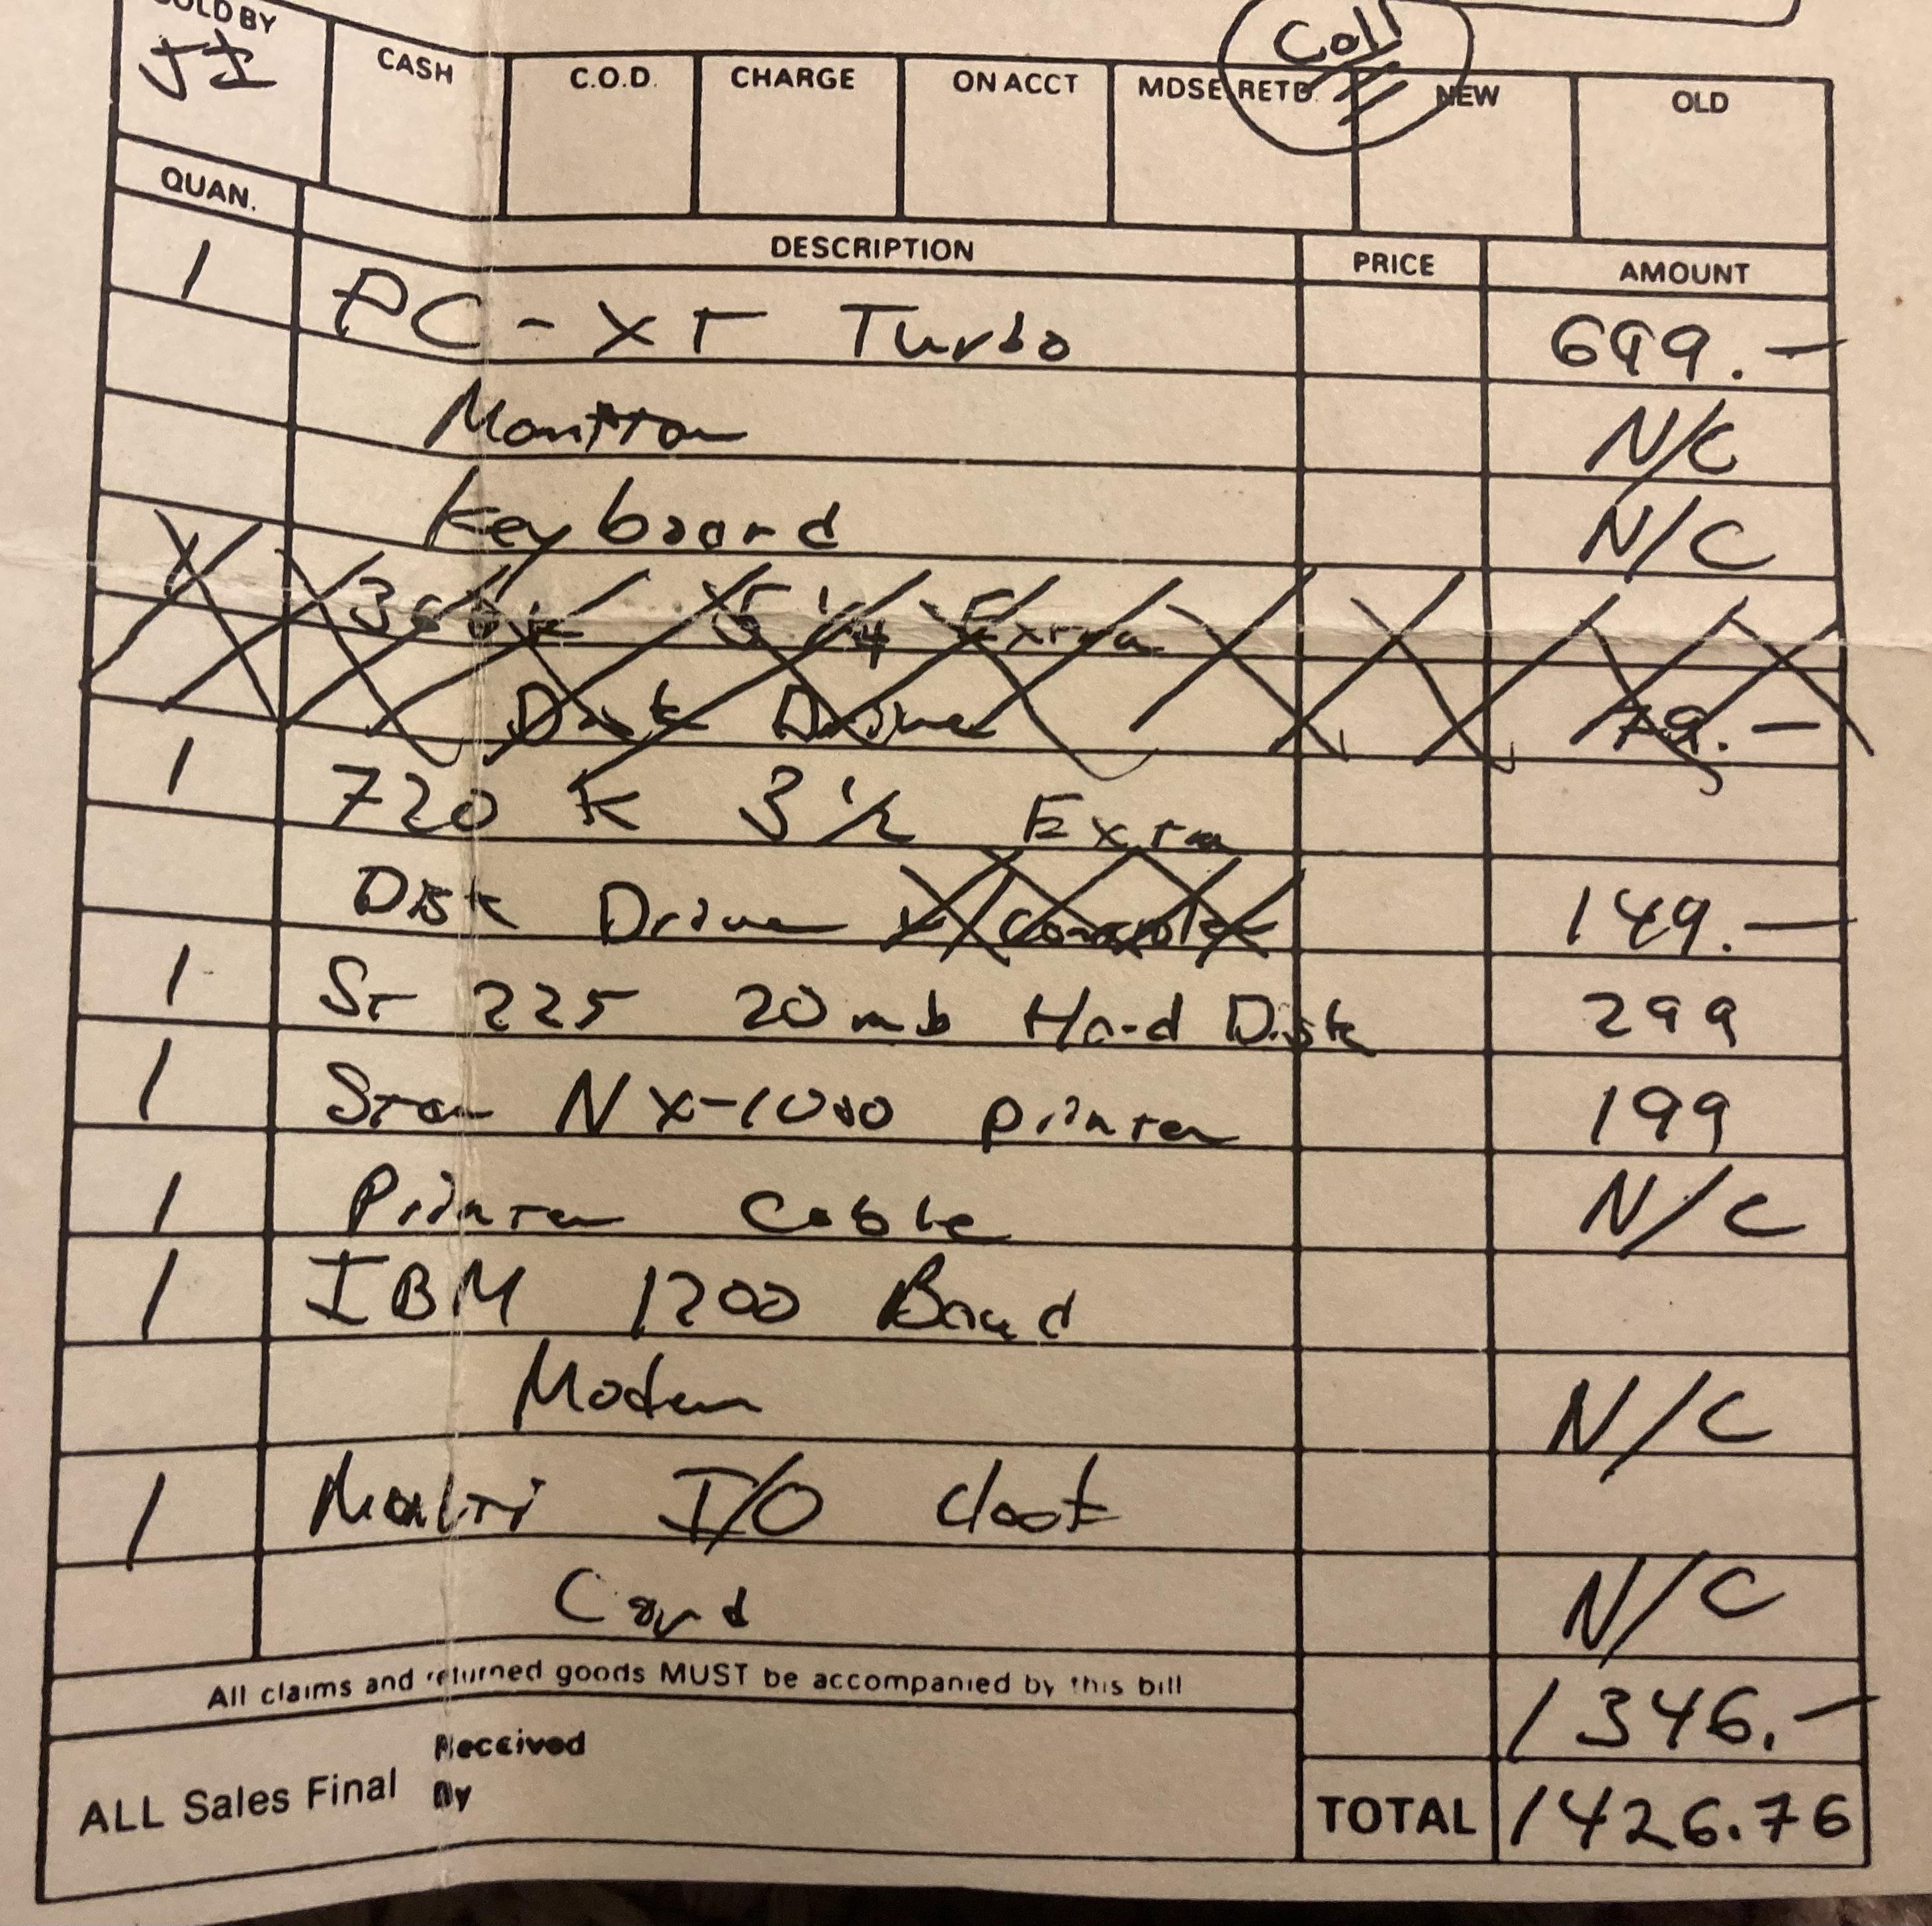 SOLD BY
JI
CASH
C.O.D.
CHARGE
ON ACCT
MDSE RETD.
Call
NEW
OLD
QUAN.
DESCRIPTION
PRICE
AMOUNT
1 PC-XT Turbo 699.—
Monitor N/C
Keyboard N/C
1 360K 5 1/4 Extra
Disk Drive 79.—
1 720 K 3 1/2 Extra
Disk Drive 149.—
1 ST 225 20mb Hard Disk 299
1 Star NX-1000 printer 199
1 Printer Cable N/C
1 IBM 1200 Baud
Modem N/C
1 Multi I/O clock
Card N/C
All claims and returned goods MUST be accompanied by this bill
1346.—
ALL Sales Final
Received
By
TOTAL 1426.76